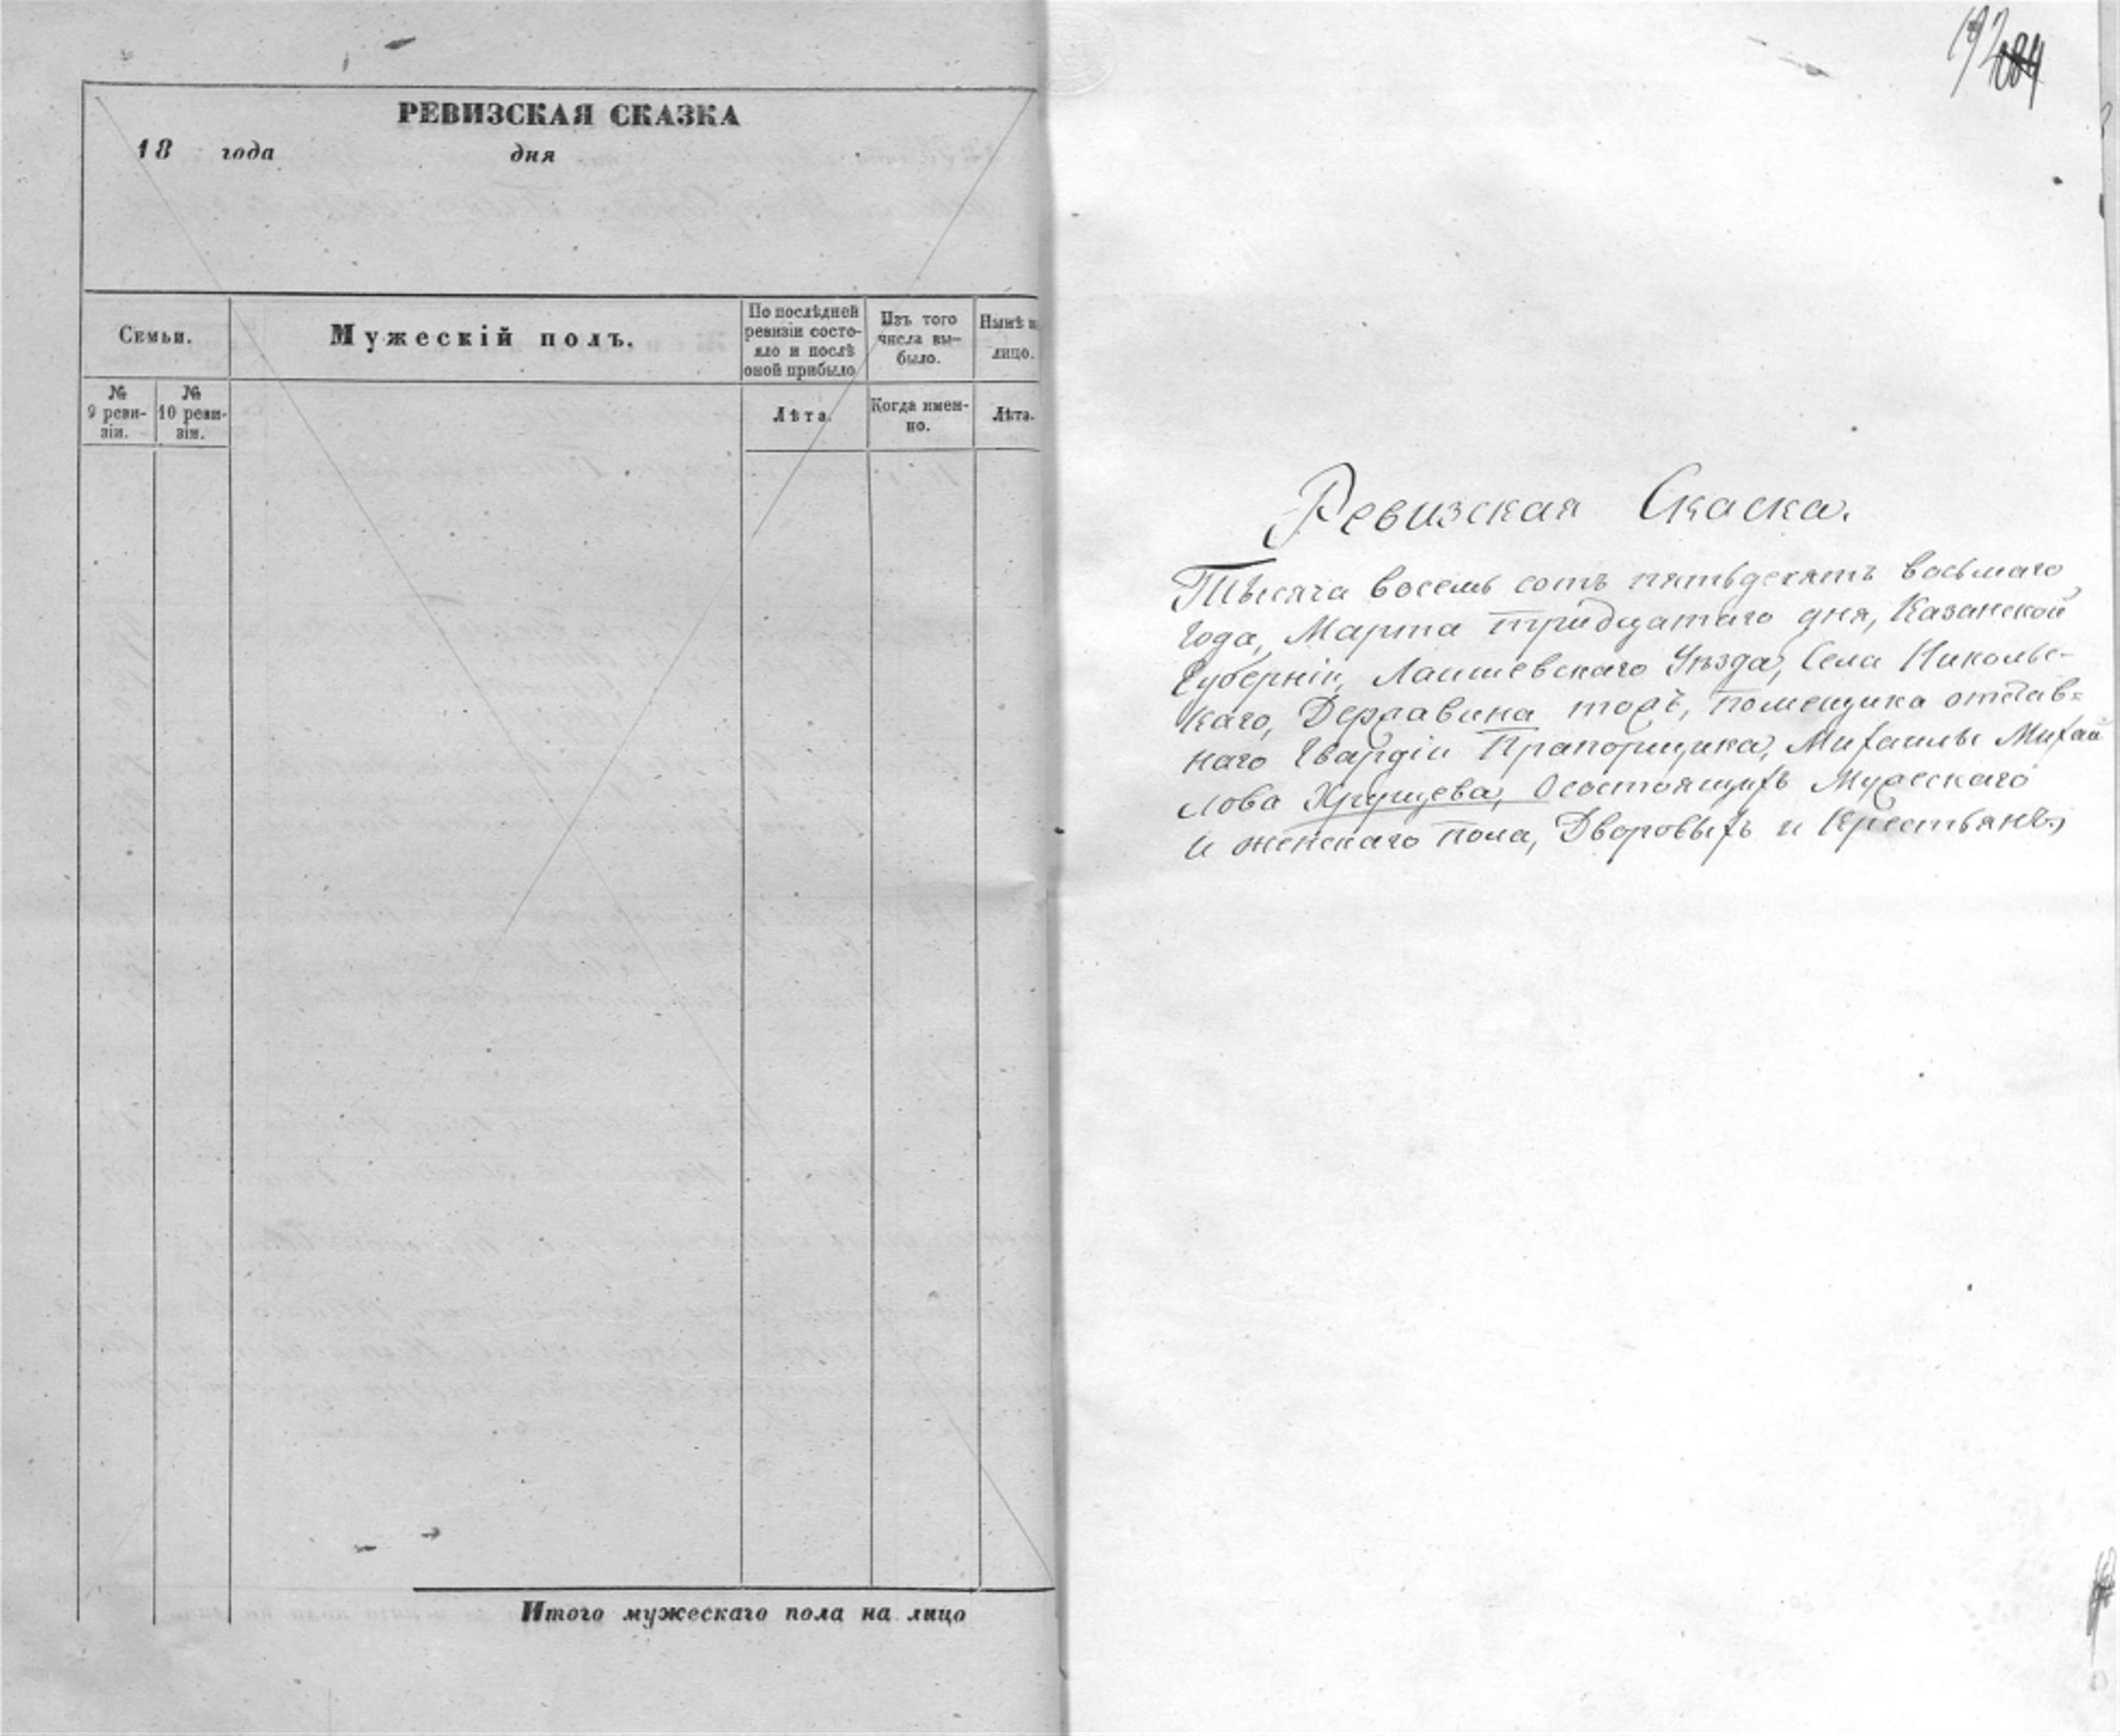 РЕВИЗСКАЯ СКАЗКА
18 года дня
Семьи.
Мужескій полъ.
По послѣдней
ревизіи состо-
яло и послѣ
оной прибыло
Изъ того
числа вы-
было.
Нынѣ н
лицо.
№
9 реви-
зіи.
№
10 реви-
зіи.
Лѣта.
Когда имен-
но.
Лѣта.
Итого мужескаго пола на лицо
192
184
Ревизская Скаска.
Тысяча восемь сотъ пятьдесятъ восьмаго
года, Марта тридцатаго дня, Казанской
Губерніи, Лаишевскаго Уѣзда, Села Никольс-
каго, Державина тожъ, помещика отстав=
наго Гвардіи Прапорщика, Михаилы Михай
лова Хрущева, О состоящихъ Мужескаго
и женскаго пола, Дворовыхъ и Крестьянъ,